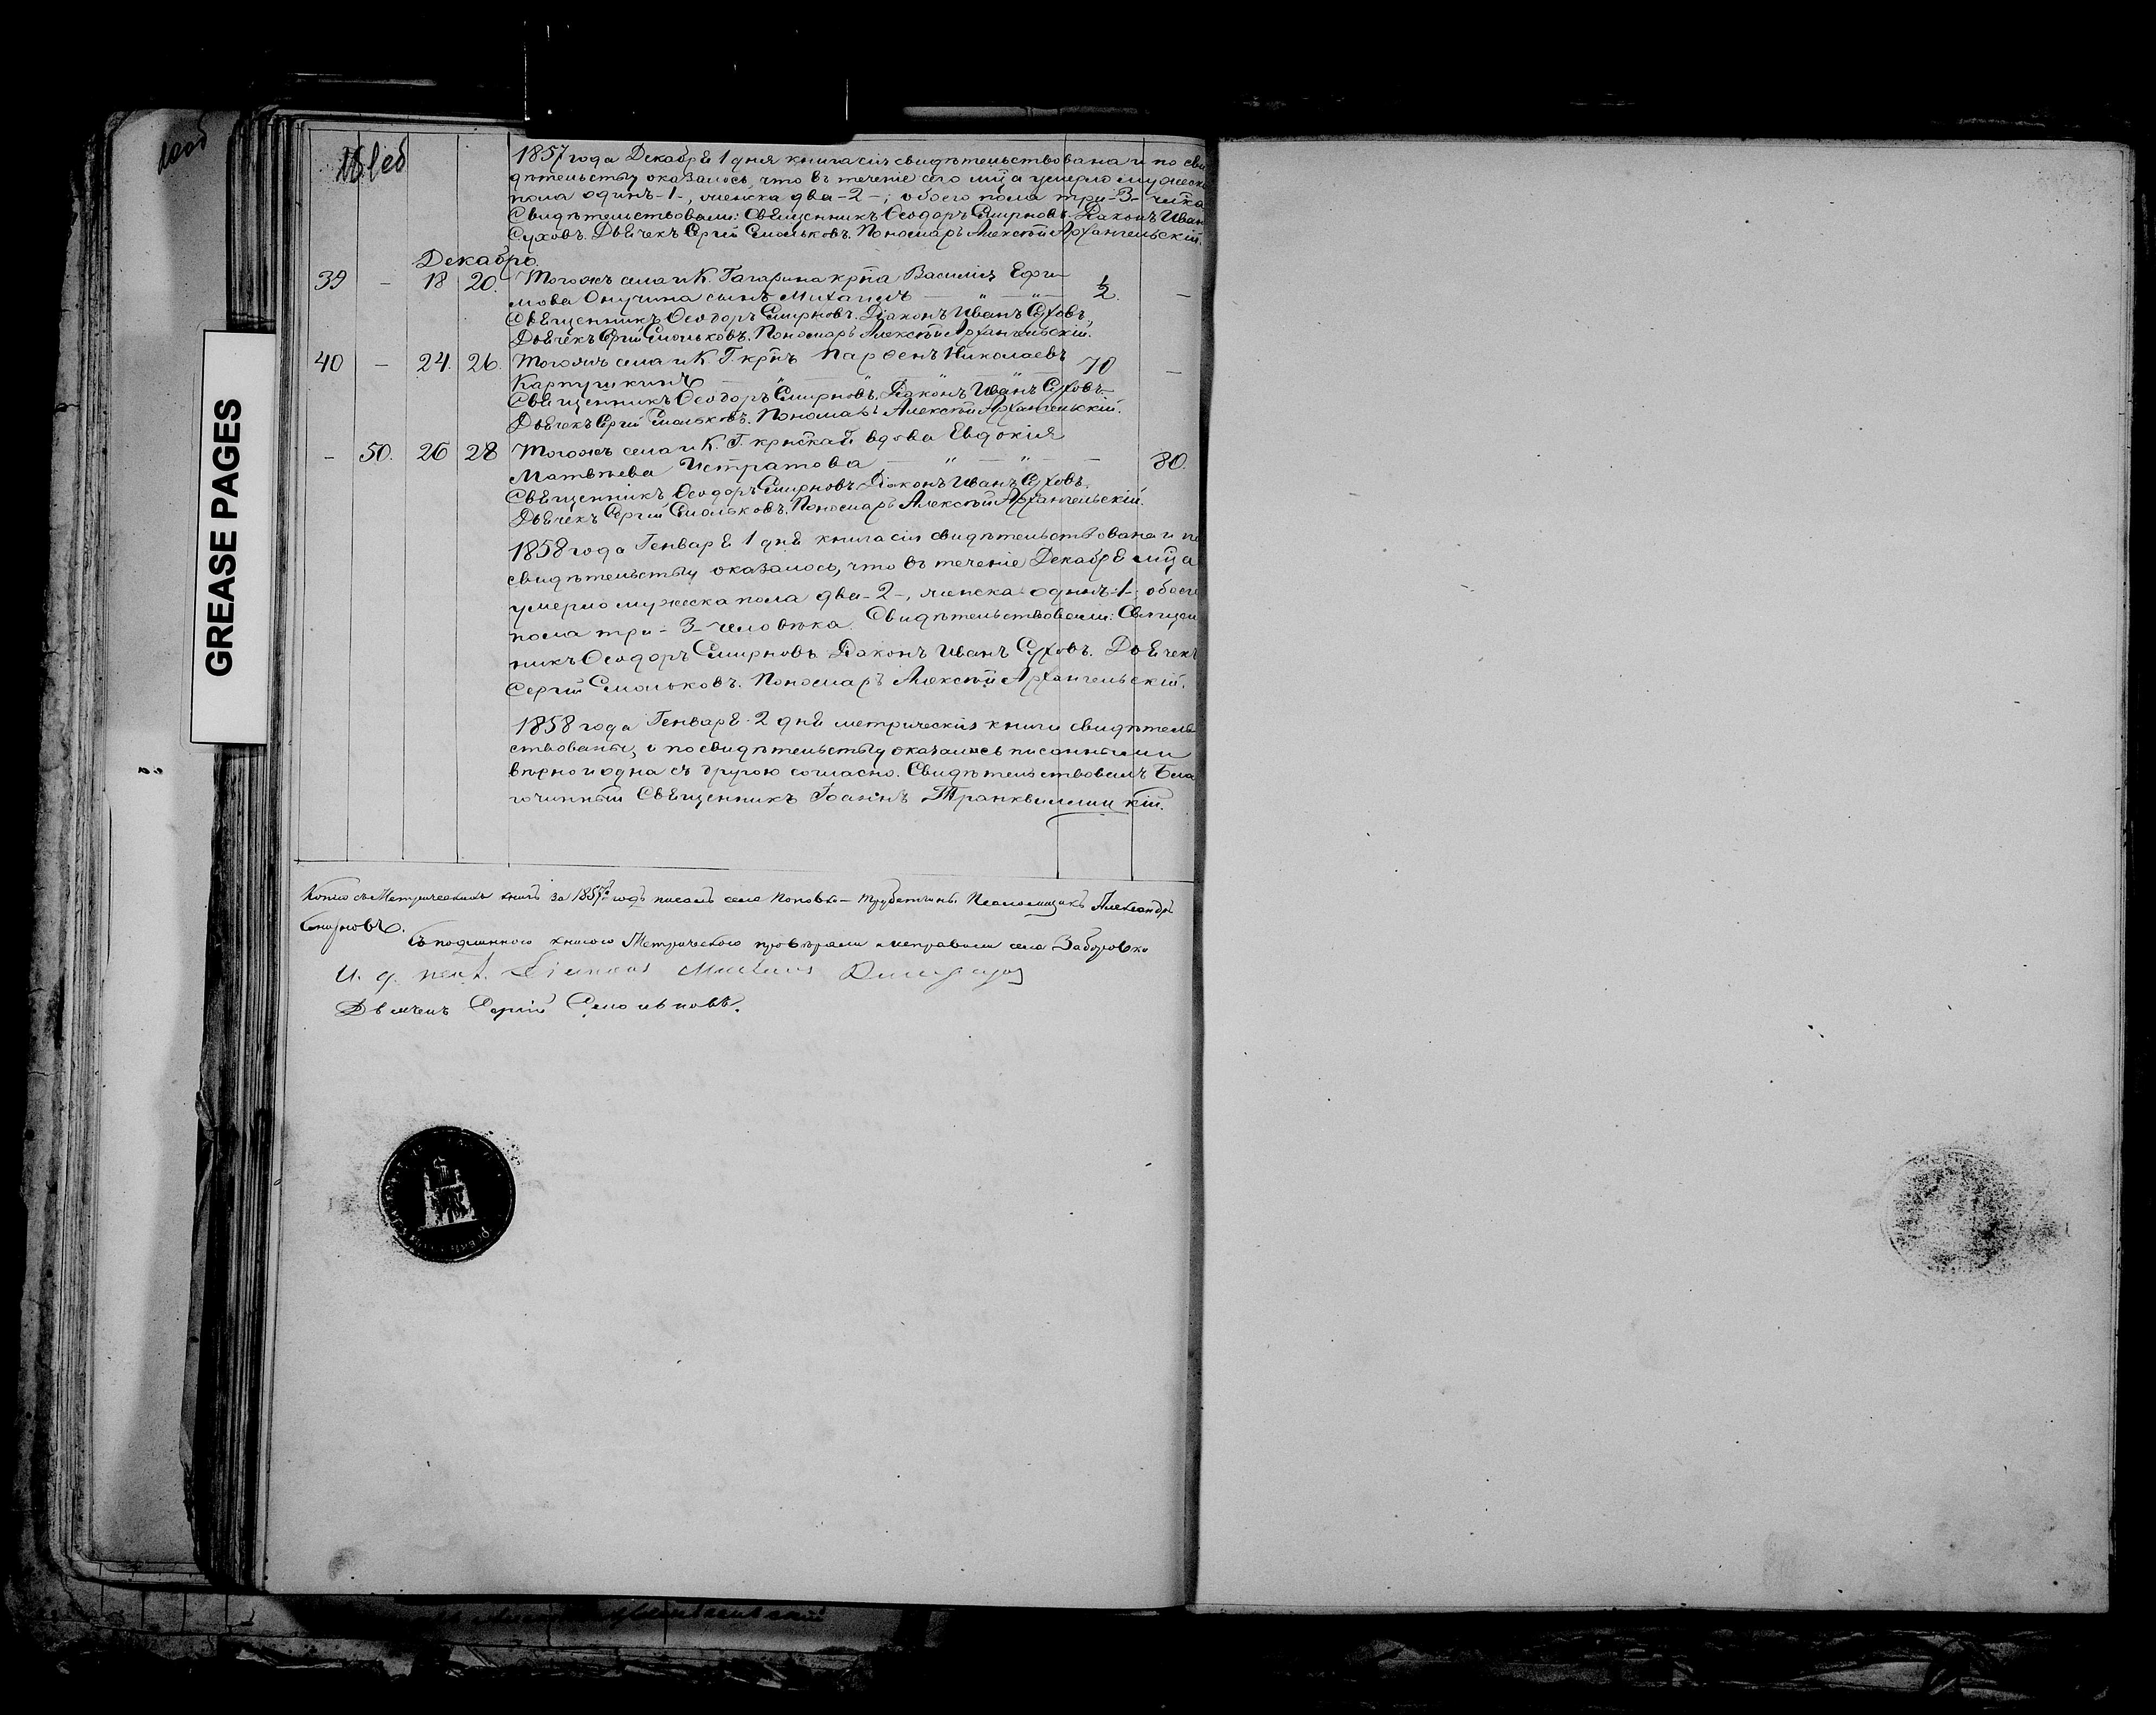 GREASE PAGES
1857 года Декабря 1 дня книга сія свидѣтельствована и по сви
дѣтельству оказалось, что въ теченіе сего мца умерло мужеска
пола одинъ -1-, женска два -2-; обоего пола три -3- челка
Свидѣтельствовали: Священникъ Ѳеодоръ Смирновъ. Діаконъ Иван
Суховъ. Дьячекъ Сергій Смольковъ. Пономарь Алексѣй Архангельскій.
Декабрь.
39 - 18 20. Тогожъ села и К. Гагарина крна Василія Ефи- 1/2. -
мова Онучина сынъ Михаилъ
Священникъ Ѳеодоръ Смирновъ. Діаконъ Иванъ Суховъ.
Дьячекъ Сергій Смольковъ. Пономарь Алексѣй Архангельскій.
40 - 24. 26. Тогожъ села и К. Г. крнъ Парѳенъ Николаевъ 70 -
Карпушкинъ
Священникъ Ѳеодоръ Смирновъ. Діаконъ Иванъ Суховъ.
Дьячекъ Сергій Смольковъ. Пономарь Алексѣй Архангельскій.
- 50. 26 28 Тогожъ села и К. Г. крнская вдова Евдокія
Матвѣева Истратова 80.
Священникъ Ѳеодоръ Смирновъ. Діаконъ Иванъ Суховъ.
Дьячекъ Сергій Смольковъ. Пономарь Алексѣй Архангельскій.
1858 года Генваря 1 дня книга сія свидѣтельствована и по
свидѣтельству оказалось, что въ теченіе Декабря мца
умерло мужеска пола два -2-, женска одинъ -1-; обоего
пола три -3- человѣка. Свидѣтельствовали: Священ
никъ Ѳеодоръ Смирновъ. Діаконъ Иванъ Суховъ. Дьячекъ
Сергій Смольковъ. Пономарь Алексѣй Архангельскій.
1858 года Генваря 2 дня метрическія книги свидѣтель
ствованы, и по свидѣтельству оказались писанными
вѣрно и одна съ другою согласно. Свидѣтельствовалъ Бла
гочинный Священникъ Іоаннъ Транквиллицкій.
Копію съ Метрическихъ книгъ за 1857й годъ писалъ села Поповки - Трубетчины Псаломщикъ Александръ
Смирновъ.
Съ подлинною книгою Метрическою провѣряли и исправили села Заборовки
И. д.
Дьячекъ Сергій Смольковъ.